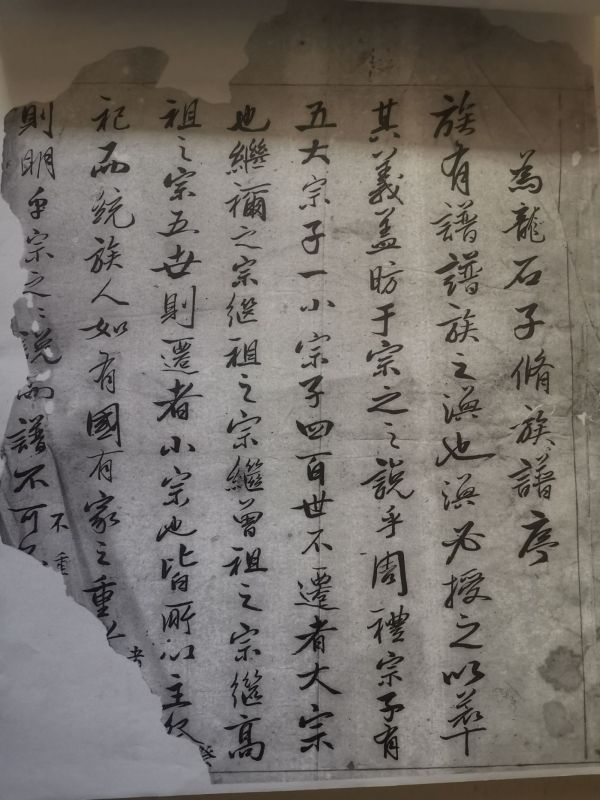 為龍石子脩族譜序
族有譜譜族之渙也渙必授之以萃
其義盖昉于宗之之說乎周禮宗子有
五大宗子一小宗子四百世不遷者大宗
也繼禰之宗繼祖之宗繼曾祖之宗繼高
祖之宗五世則遷者小宗也皆所以主
祀而統族人如有國有家之重
則明乎宗之之說而譜不可
不重